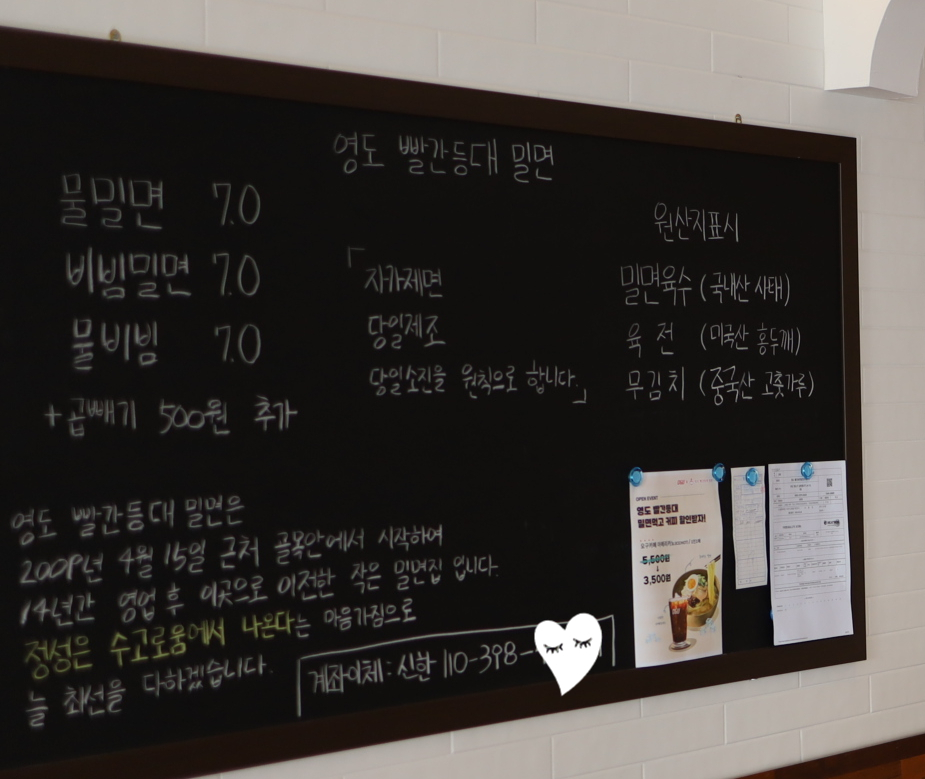 영도 빨간등대 밀면
물밀면 7.0
비빔밀면 7.0
물비빔 7.0
+곱빼기 500원 추가
「자가제면
당일제조
당일소진을 원칙으로 합니다.」
원산지표시
밀면육수 (국내산 사태)
육전 (미국산 홍두깨)
무김치 (중국산 고춧가루)
영도 빨간등대 밀면은
2009년 4월 15일 근처 골목안에서 시작하여
14년간 영업 후 이곳으로 이전한 작은 밀면집 입니다.
정성은 수고로움에서 나온다는 마음가짐으로
늘 최선을 다하겠습니다.
계좌이체: 신한 110-398-
OPEN EVENT
영도 빨간등대
밀면먹고 커피 할인받자!
5,500원
↓
3,500원